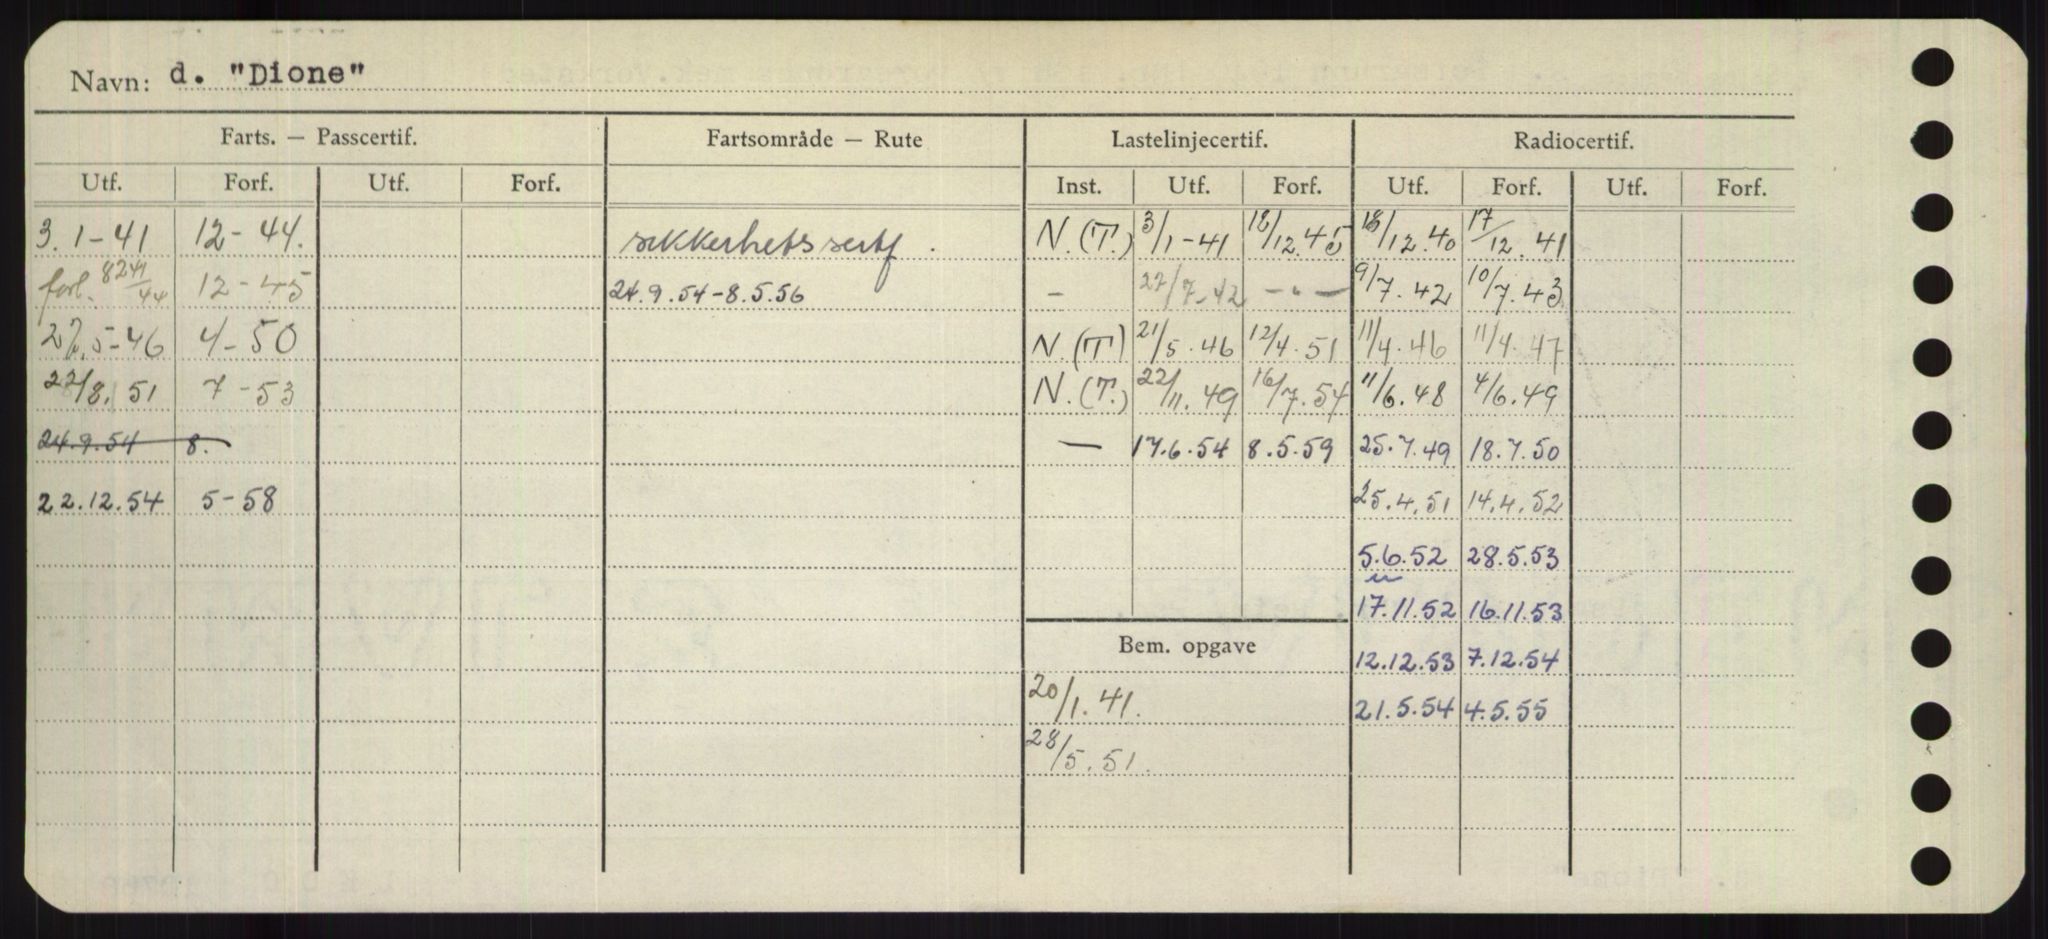 Navn: d. "Dione"
Farts. — Passcertif. Fartsområde — Rute Lastelinjecertif. Radiocertif.
Utf. Forf. Utf. Forf. Inst. Utf. Forf. Utf. Forf. Utf. Forf.
3. 1 - 41 12 - 44. sikkerhetssertf. N. (T.) 3/1 - 41 18/12. 45 18/12. 40 17/12. 41
forl. 12 - 45 24.9.54 - 8.5.56 — 27/7. 42 - " - 9/7. 42 10/7. 43
27. 5 - 46 4 - 50 N. (T) 21/5. 46 12/4. 51 11/4. 46 11/4. 47
22/8. 51 7 - 53 N. (T.) 22/11. 49 16/7. 54 11/6. 48 4/6. 49
24.9.54 8. — 17.6.54 8.5.59 25.7.49 18.7.50
22.12.54 5 - 58 25.4.51 14.4.52
5.6.52 28.5.53
17.11.52 16.11.53
Bem. opgave
12.12.53 7.12.54
20/1. 41.
21.5.54 4.5.55
28/5. 51.